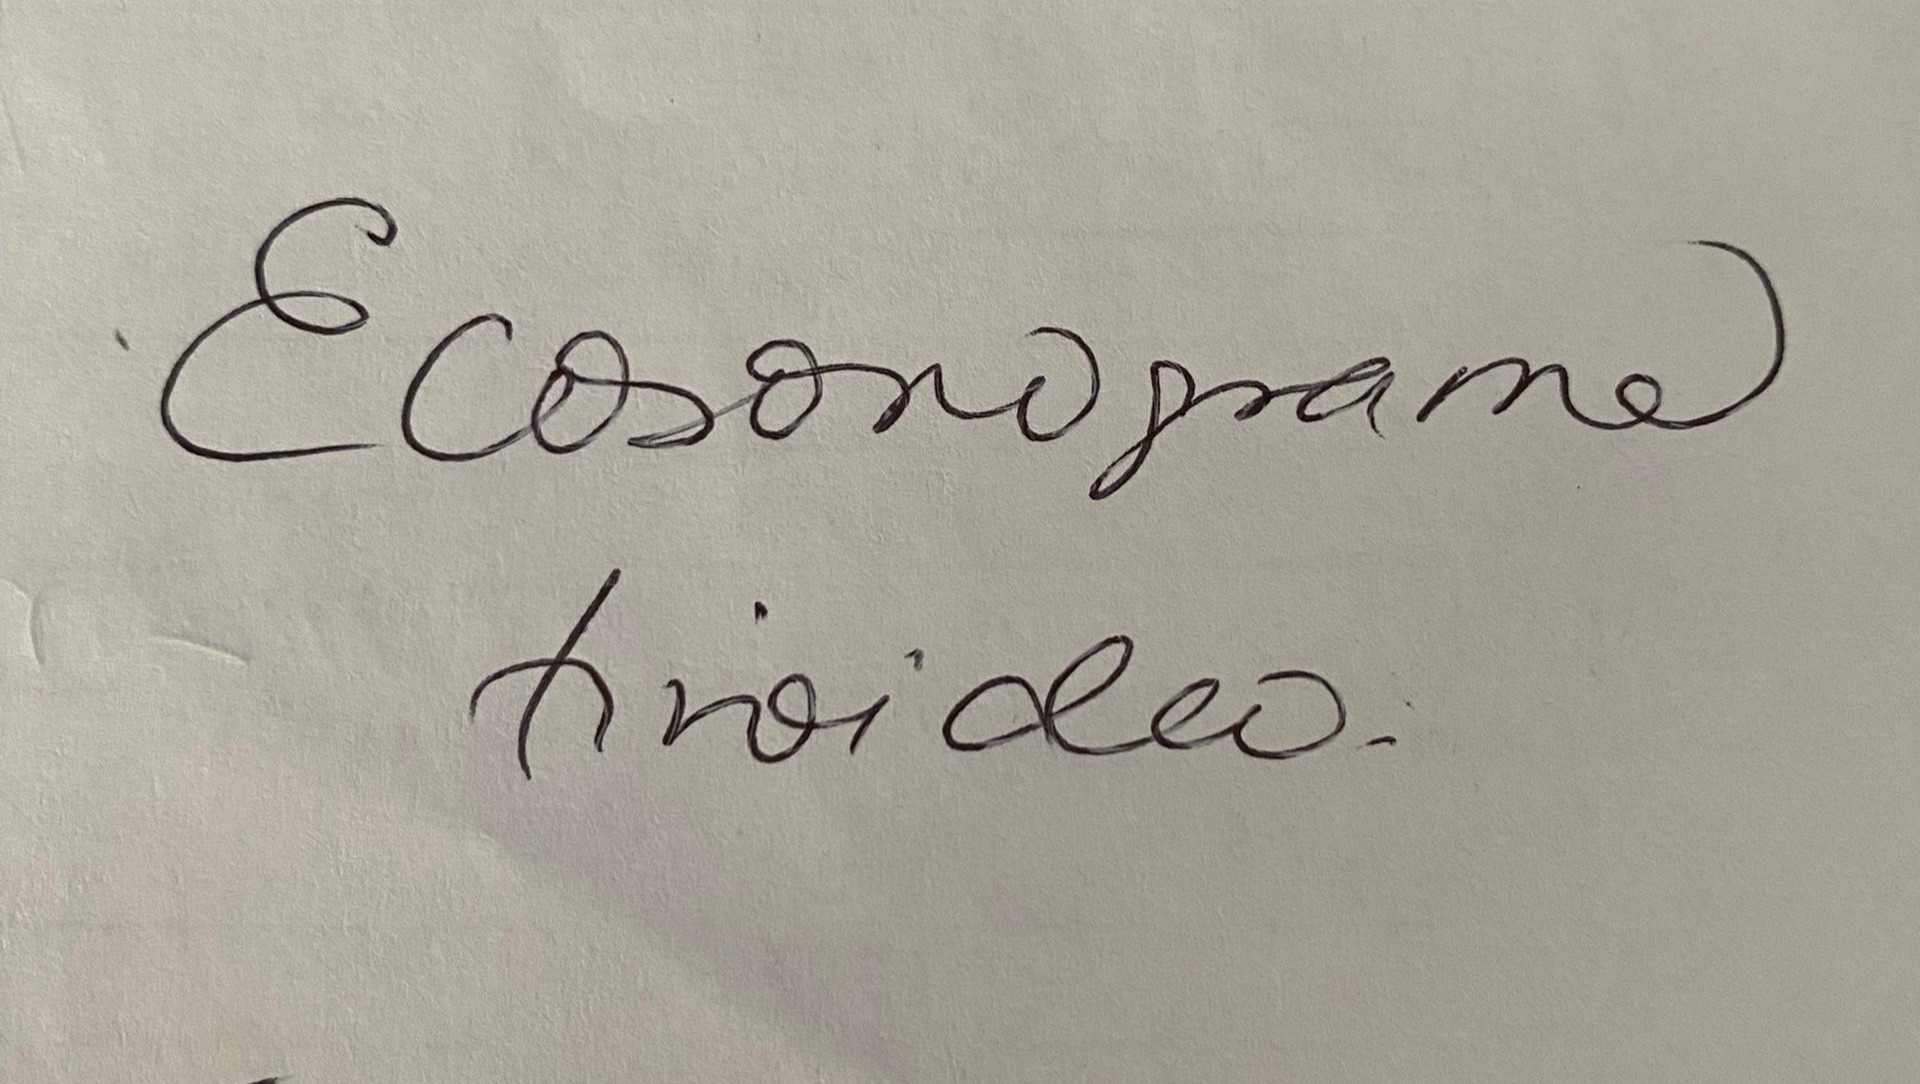 Ecosonograma
tiroideo.